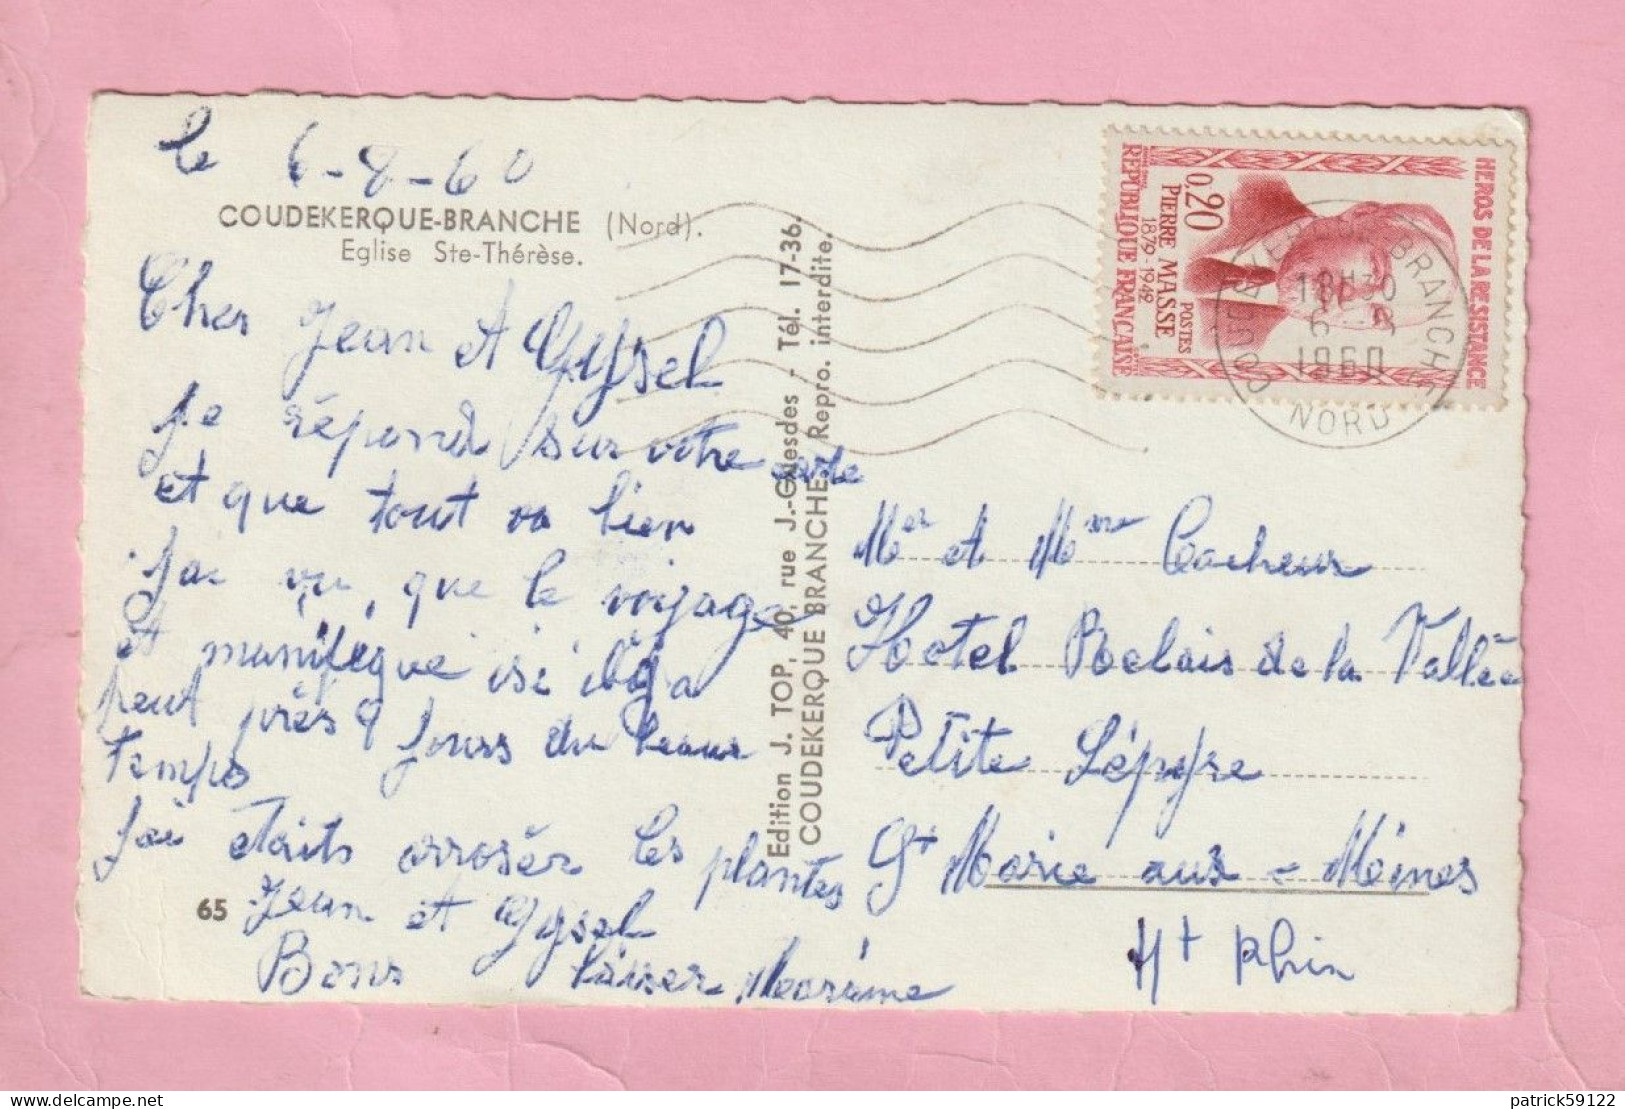 le 6-8-60
COUDEKERQUE-BRANCHE (Nord).
Eglise Ste-Thérèse.
Cher Jean et Gysel
je répond sur votre carte
et que tout va bien
J'ai vu, que le voyage
et munifique isi il y a
peut près 9 jours du beau
temps
J'ai étaits arrosér les plantes
Jean et Gysel
Bons baiser Marraine
65
Edition J. TOP, 40, rue J.-Guesdes - Tél. 17-36.
COUDEKERQUE BRANCHE. Repro. interdite.
HEROS DE LA RESISTANCE
0,20
PIERRE MASSE
1879-1942
POSTES
REPUBLIQUE FRANÇAISE
COUDEKERQUE BRANCHE
18H30
6-8
1960
NORD
Mr et Mme Cacheux
Hotel Relais de la Vallée
Petite Lépofre
St Marie aux-Mines
Ht Rhin
patrick59122